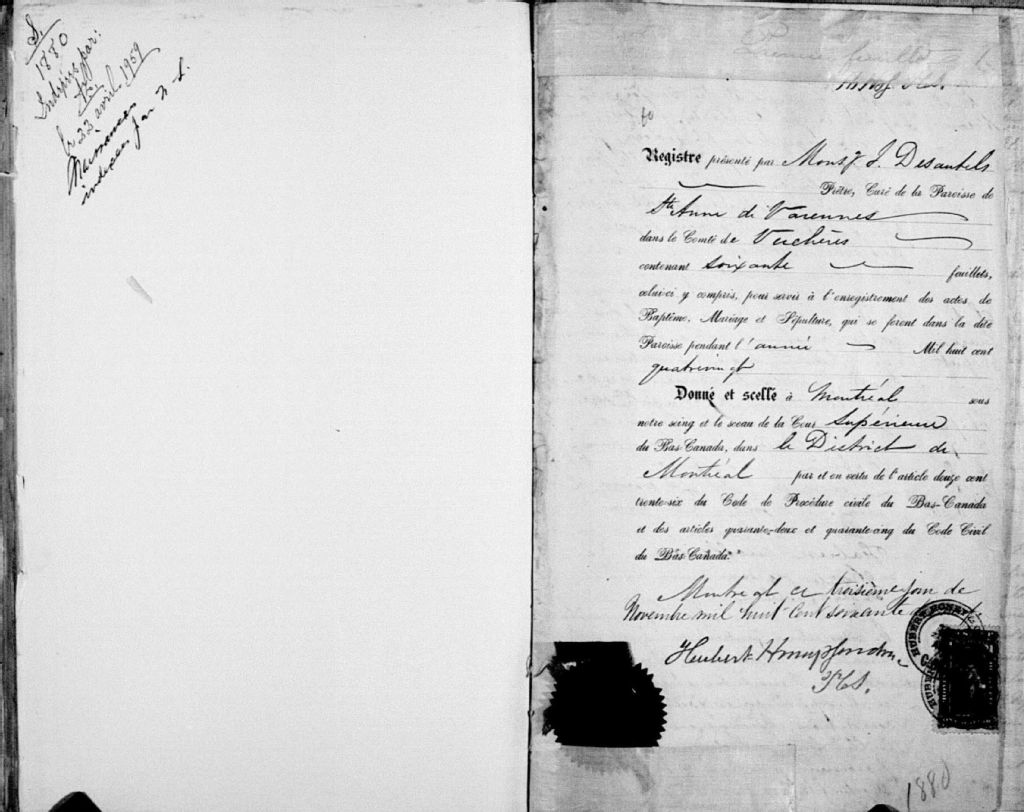 S.
1880
Indexés par:
le 22 avril, 1959
Naissances
indexées par
Première feuillet
60
Registre présenté par Monsr J. Desautels
Prêtre, Curé de la Paroisse de
Ste Anne de Varennes
dans le Comté de Verchères
contenant soixante feuillets,
celui-ci y compris, pour servir à l'enregistrement des actes de
Baptême, Mariage et Sépulture, qui se feront dans la dite
Paroisse pendant l'année Mil huit cent
quatrevingt
Donné et scellé à Montréal sous
notre seing et le sceau de la Cour Supérieure
du Bas-Canada, dans le District de
Montréal par et en vertu de l'article douze cent
trente-six du Code de Procédure civile du Bas-Canada
et des articles quarante-deux et quarante-cinq du Code Civil
du Bas-Canada.
Montreal ce troisième jour de
Novembre mil huit cent soixante
Hubert
PCS.
HUBERT HONEY
1880